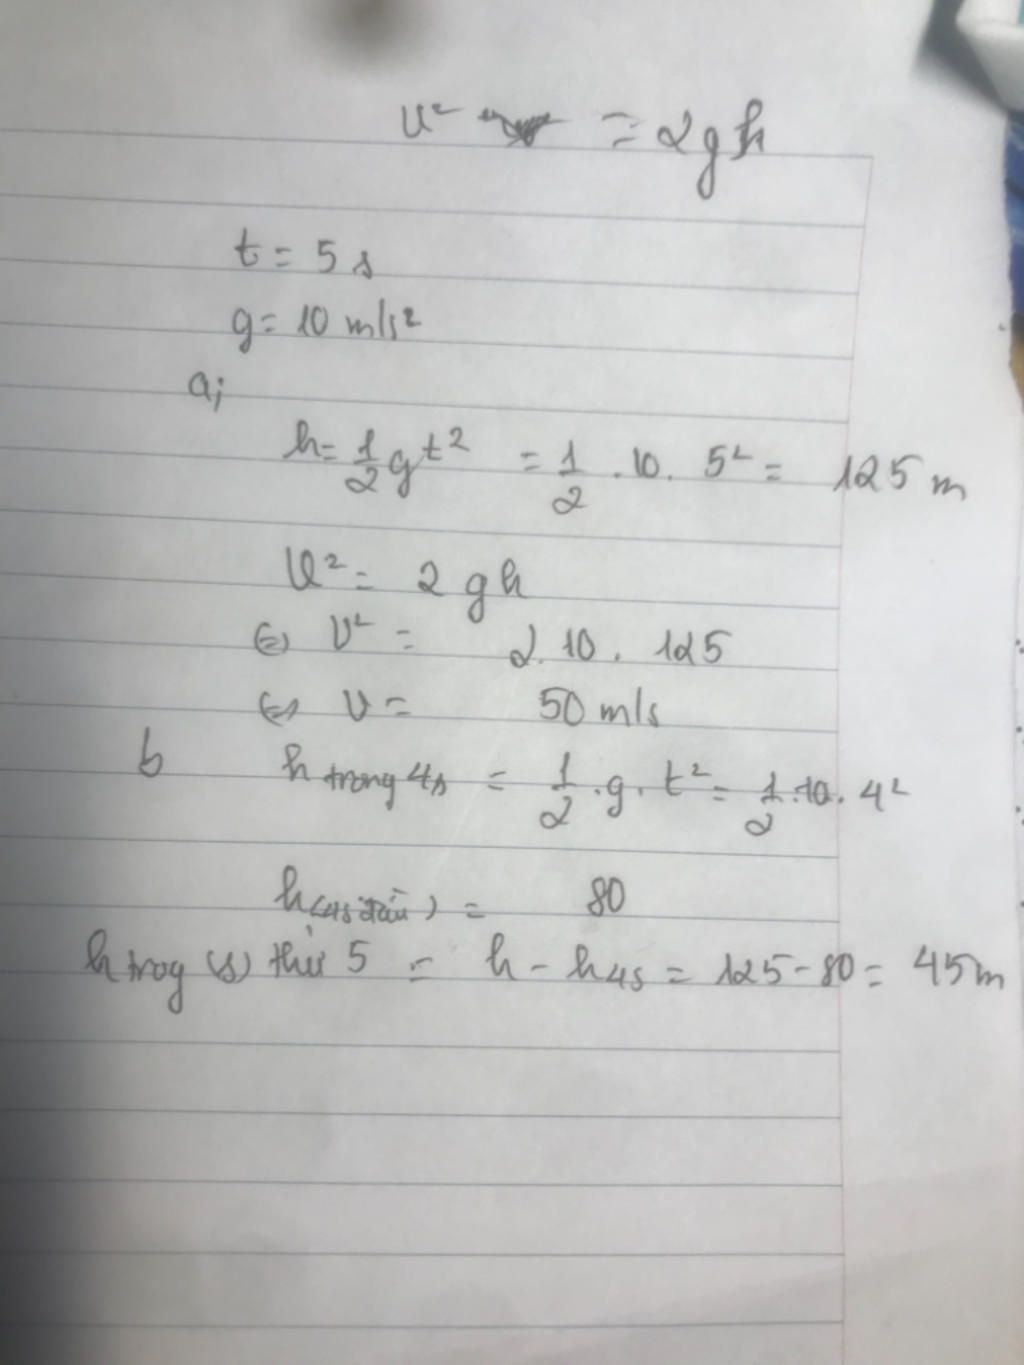 v² = 2gh
t = 5 s
g = 10 m/s²
a;
h = 1/2 g t² = 1/2 . 10 . 5² = 125 m
v² = 2 gh
⇔ v² = 2. 10 . 125
⇔ v = 50 m/s
b h trong 4s = 1/2 . g . t² = 1/2 . 10 . 4²
h(4s đầu) = 80
h trog (s) thứ 5 = h - h4s = 125 - 80 = 45m